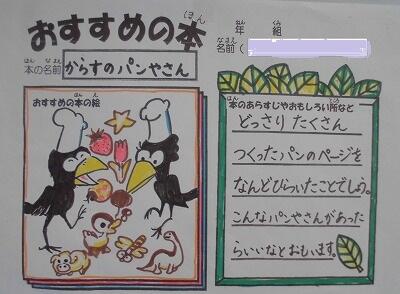 おすすめの本
ほん
年 組
ねん くみ
名前(
なまえ
本の名前
ほん なまえ
からすのパンやさん
おすすめの本の絵
本のあらすじやおもしろい所など
どっさり たくさん
つくったパンのページを
なんどひらいたことでしょう。
こんなパンやさんがあった
らいいなとおもいます。